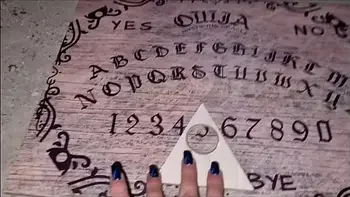 YES OUIJA NO
ABCDEFGHIJKLM
NOPQRSTUVWXYZ
1234 67890
BYE